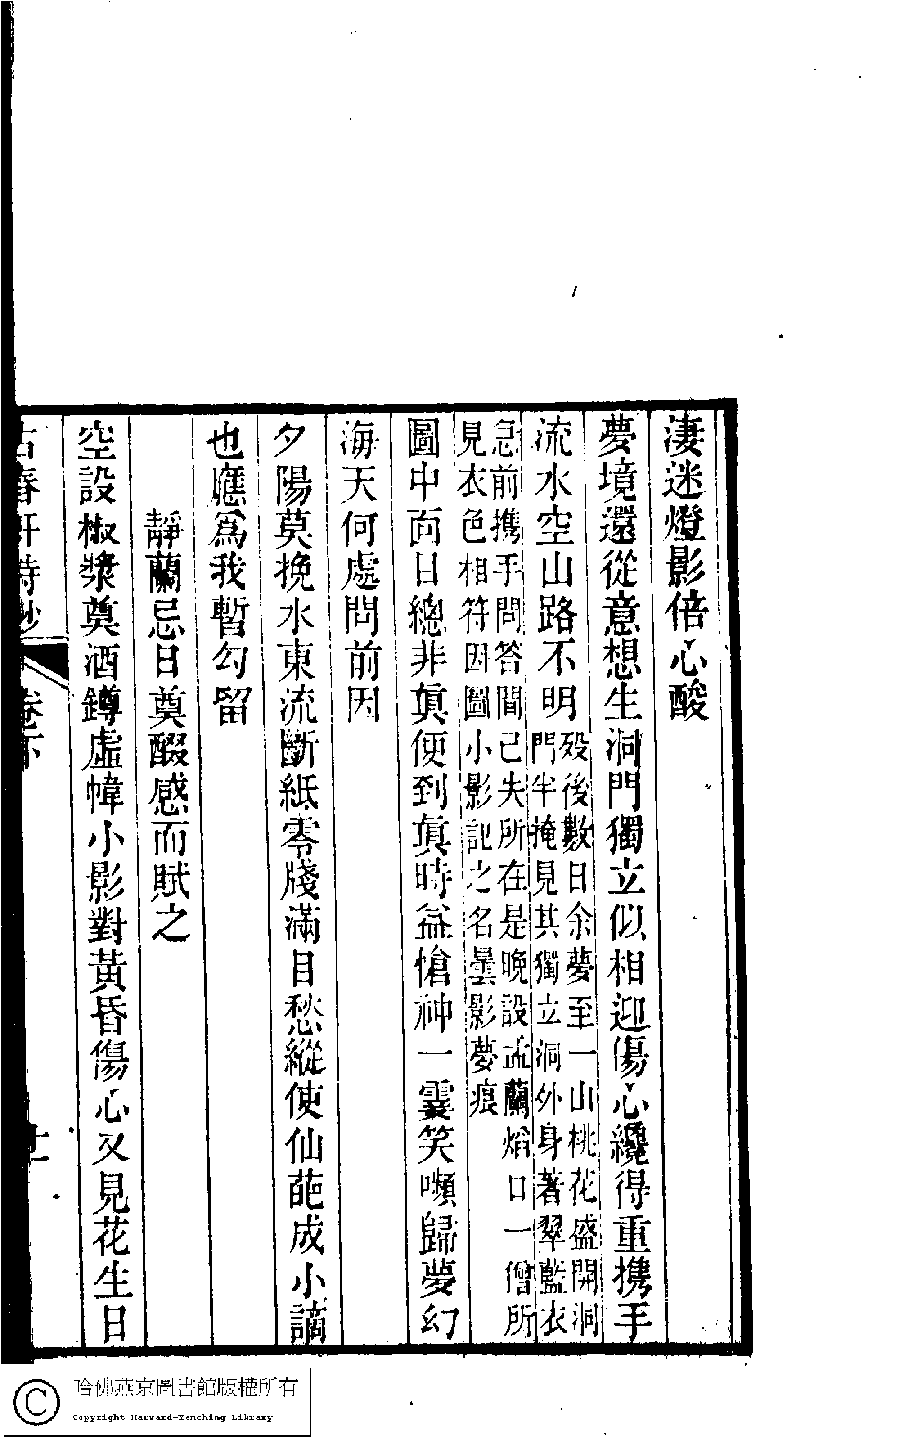 淒迷燈影倍心酸
夢境還從意想生洞門獨立似相迎傷心纔得重攜手
流水空山路不明歿後數日余夢至一山桃花盛開洞
門半掩見其獨立洞外身著翠藍衣
急前攜手問答間已失所在是晚設盂蘭焰口一僧所
見衣色相符因圖小影記之名曇影夢痕
圖中面目總非眞便到眞時益愴神一霎笑嚬歸夢幻
海天何處問前因
夕陽莫挽水東流斷紙零牋滿目愁縱使仙葩成小謫
也應爲我暫勾留
靜蘭忌日奠醊感而賦之
空設椒漿奠酒罇虛幃小影對黃昏傷心又見花生日
古春軒詩鈔
卷下
哈佛燕京圖書館版權所有
Copyright Harvard-Yenching Library